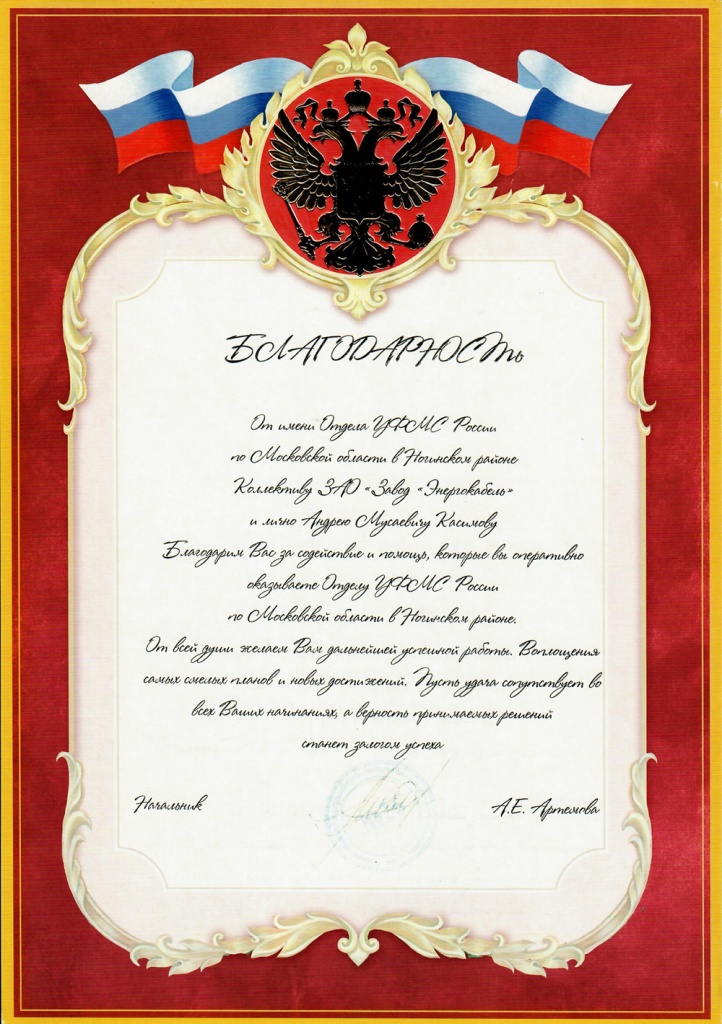 БЛАГОДАРНОСТЬ
От имени Отдела УФМС России
по Московской области в Ногинском районе
Коллективу ЗАО «Завод «Энергокабель»
и лично Андрею Мусаевичу Касимову
Благодарим Вас за содействие и помощь, которые вы оперативно
оказываете Отделу УФМС России
по Московской области в Ногинском районе.
От всей души желаем Вам дальнейшей успешной работы. Воплощения
самых смелых планов и новых достижений. Пусть удача сопутствует во
всех Ваших начинаниях, а верность принимаемых решений
станет залогом успеха
Начальник
А.Е. Артемова